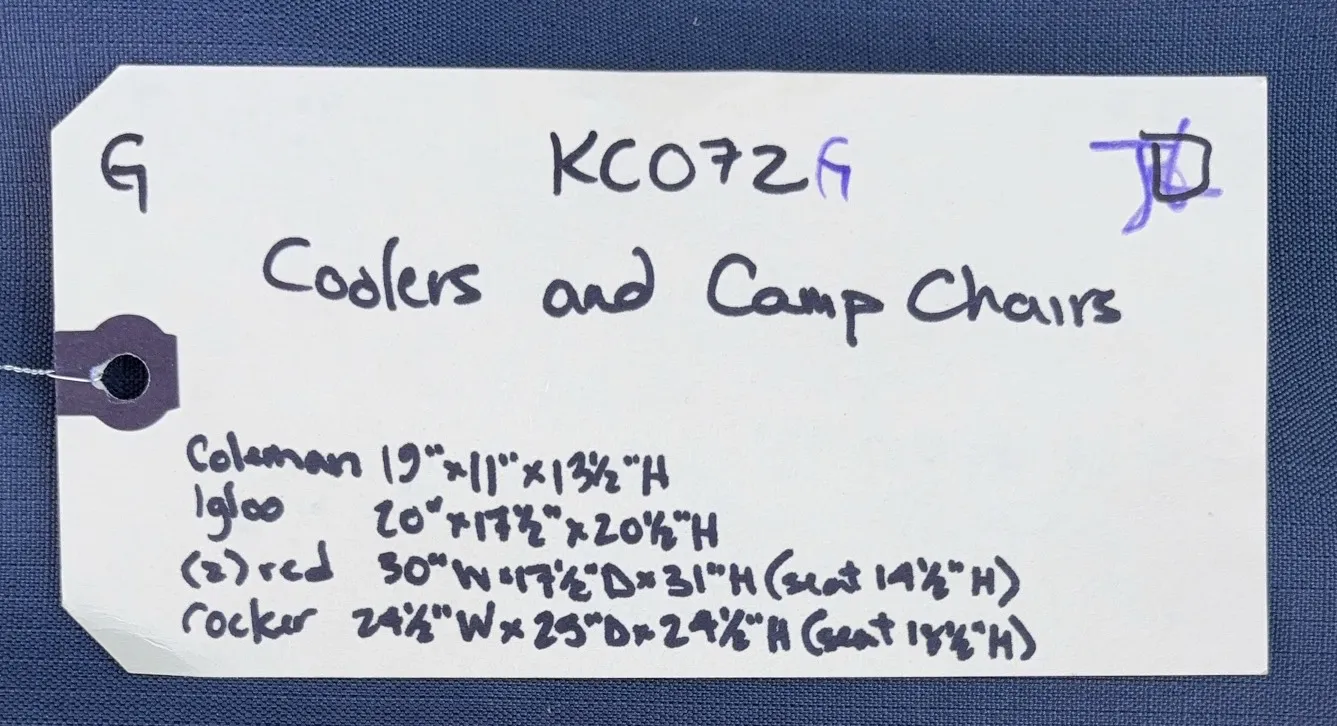 G KC072G D
Coolers and Camp Chairs
Coleman 19"x11"x13½"H
Igloo 20"x17½"x20½"H
(2) red 30"W x 17½"D x 31"H (seat 14½"H)
rocker 24½"W x 25"D x 24½"H (seat 13½"H)